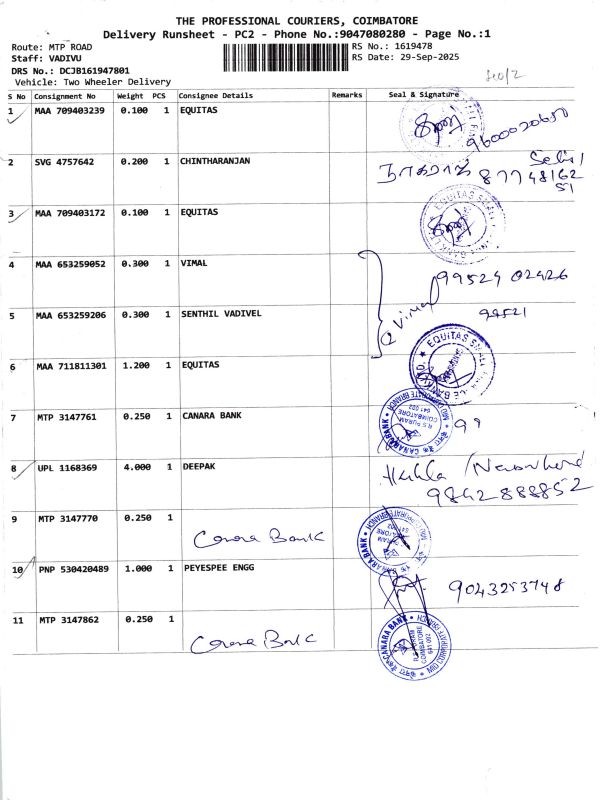 THE PROFESSIONAL COURIERS, COIMBATORE
Delivery Runsheet - PC2 - Phone No.:9047080280 - Page No.:1
Route: MTP ROAD RS No.: 1619478
Staff: VADIVU RS Date: 29-Sep-2025
DRS No.: DCJB161947801
Vehicle: Two Wheeler Delivery
S No Consignment No Weight PCS Consignee Details Remarks Seal & Signature
1 MAA 709403239 0.100 1 EQUITAS 9600020650
2 SVG 4757642 0.200 1 CHINTHARANJAN 87748162
51
3 MAA 709403172 0.100 1 EQUITAS EQUITAS SMALL
4 MAA 653259052 0.300 1 VIMAL 99524 02426
Vimal
5 MAA 653259206 0.300 1 SENTHIL VADIVEL 99521
6 MAA 711811301 1.200 1 EQUITAS EQUITAS SMALL
7 MTP 3147761 0.250 1 CANARA BANK 99
CANARA BANK MID CORPORATE BRANCH
R S PURAM
COIMBATORE
641 002
8 UPL 1168369 4.000 1 DEEPAK
9842888852
9 MTP 3147770 0.250 1 Canara Bank
CANARA BANK
641 002
10 PNP 530420489 1.000 1 PEYESPEE ENGG 9043253748
11 MTP 3147862 0.250 1 Canara Bank
CANARA BANK MID CORPORATE BRANCH
R.S. PURAM
COIMBATORE
641 002